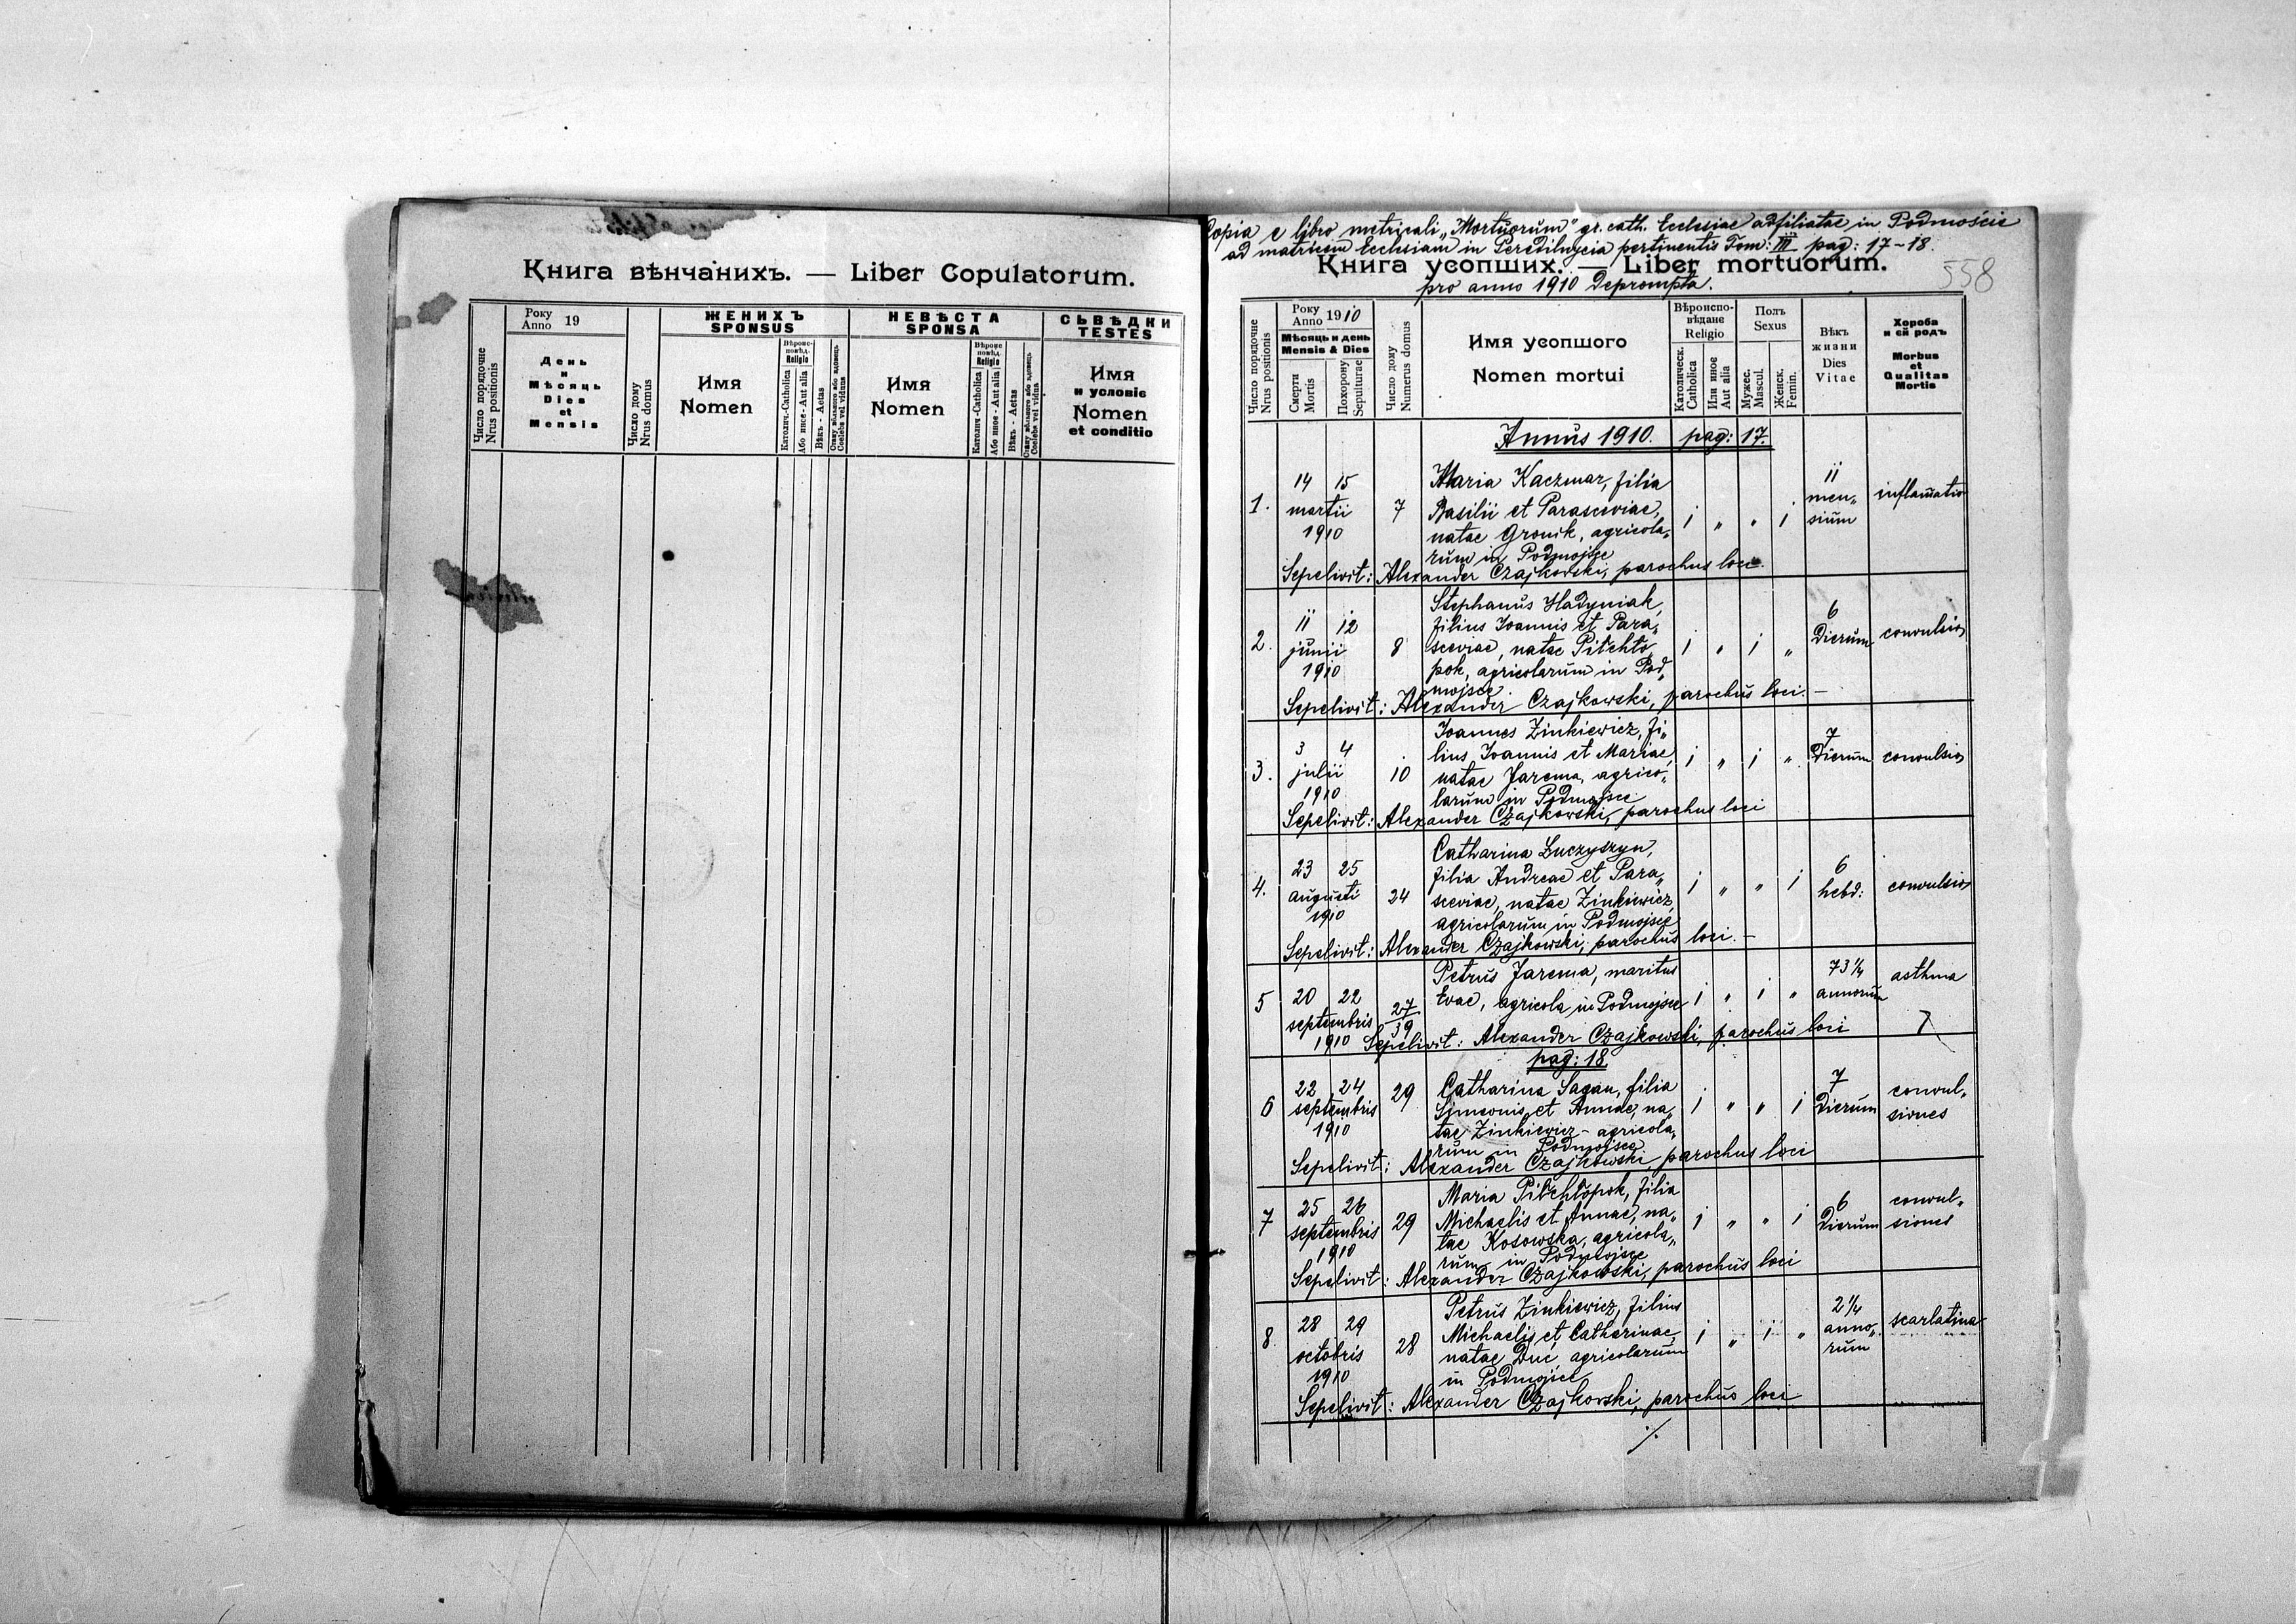 Книга вѣнчаних. — Liber Copulatorum.
Число порядочне
Nrus positionis
Року
Anno 19
День
и
Мѣсяць
Dies
et
Mensis
Число дому
Nrus domus
ЖЕНИХЪ
SPONSUS
Имя
Nomen
Вѣроис-
повѣд.
Religio
Католич.-Catholica
Або иное - Aut alia
Вѣкъ - Aetas
Coelebs vel viduus
НЕВѢСТА
SPONSA
Имя
Nomen
Religio
Католич.-Catholica
Або иное - Aut alia
Вѣкъ - Aetas
Coelebs vel vidua
СЬВѢДКИ
TESTES
Имя
и условіє
Nomen
et conditio
Copia e libro metricali „Mortuorum" gr. cath. Ecclesiae adfiliatae in Podmoście
ad matricem Ecclesiam in Peredilnycia pertinentis Tom: III pag: 17-18.
Книга усопших. — Liber mortuorum.
558
pro anno 1910 deprompta.
Число порядочне
Nrus positionis
Року
Anno 1910
Мѣсяць и день
Mensis & Dies
Смерти
Mortis
Похорону
Sepulturae
Число дому
Numerus domus
Имя усопшого
Nomen mortui
Вѣроиспо-
вѣдане
Religio
Католическ.
Catholica
Или иное
Aut alia
Полъ
Sexus
Мужес.
Mascul.
Женск.
Femin.
Вѣкъ
жизни
Dies
Vitae
Хороба
и єй родъ
Morbus
et
Qualitas
Mortis
Annus 1910. pag: 17.
1. 14 15 martii 1910 7 Maria Kaczmar, filia
Basilii et Parasceviae,
natae Gronik, agricola„
rum in Podmojsce
1 „ „ 1 11 men„ sium inflamatio
Sepelivit: Alexander Czajkowski, parochus loci.
2. 11 12 junii 1910 8 Stephanus Hadyniak,
filius Joannis et Para„
sceviae, natae Pitchło„
pok, agricolarum in Pod„
mojsce.
1 „ 1 „ 6 dierum convulsio
Sepelivit: Alexander Czajkowski, parochus loci. —
3. 3 4 julii 1910 10 Joannes Zinkiewicz, fi„
lius Joannis et Mariae,
natae Jarema, agrico„
larum in Podmojsce
1 „ 1 „ 7 dierum convulsio
Sepelivit: Alexander Czajkowski, parochus loci
4. 23 25 augusti 1910 24 Catharina Łuczyszyn,
filia Andreae et Para„
sceviae, natae Zinkiewicz,
agricolarum in Podmojsce
1 „ „ 1 6 hebd: convulsio
Sepelivit: Alexander Czajkowski, parochus loci. —
5 20 22 septembris 1910 27/39 Petrus Jarema, maritus
Evae, agricola in Podmojsce
1 „ 1 „ 73 1/4 annorum asthma
Sepelivit: Alexander Czajkowski, parochus loci
pag: 18.
6 22 24 septembris 1910 29 Catharina Sagan, filia
Simeonis et Annae, na„
tae Zinkiewicz - agricola„
rum in Podmojsce
1 „ „ 1 7 dierum convul„ siones
Sepelivit: Alexander Czajkowski, parochus loci
7 25 26 septembris 1910 29 Maria Pitchłopok, filia
Michaelis et Annae, na„
tae Kosowska, agricola„
rum in Podmojsce
1 „ „ 1 6 dierum convul„ siones
Sepelivit: Alexander Czajkowski, parochus loci
8. 28 29 octobris 1910 28 Petrus Zinkiewicz, filius
Michaelis et Catharinae,
natae Duc, agricolarum
in Podmojsce
1 „ 1 „ 2 1/4 anno„ rum scarlatina
Sepelivit: Alexander Czajkowski, parochus loci
./.